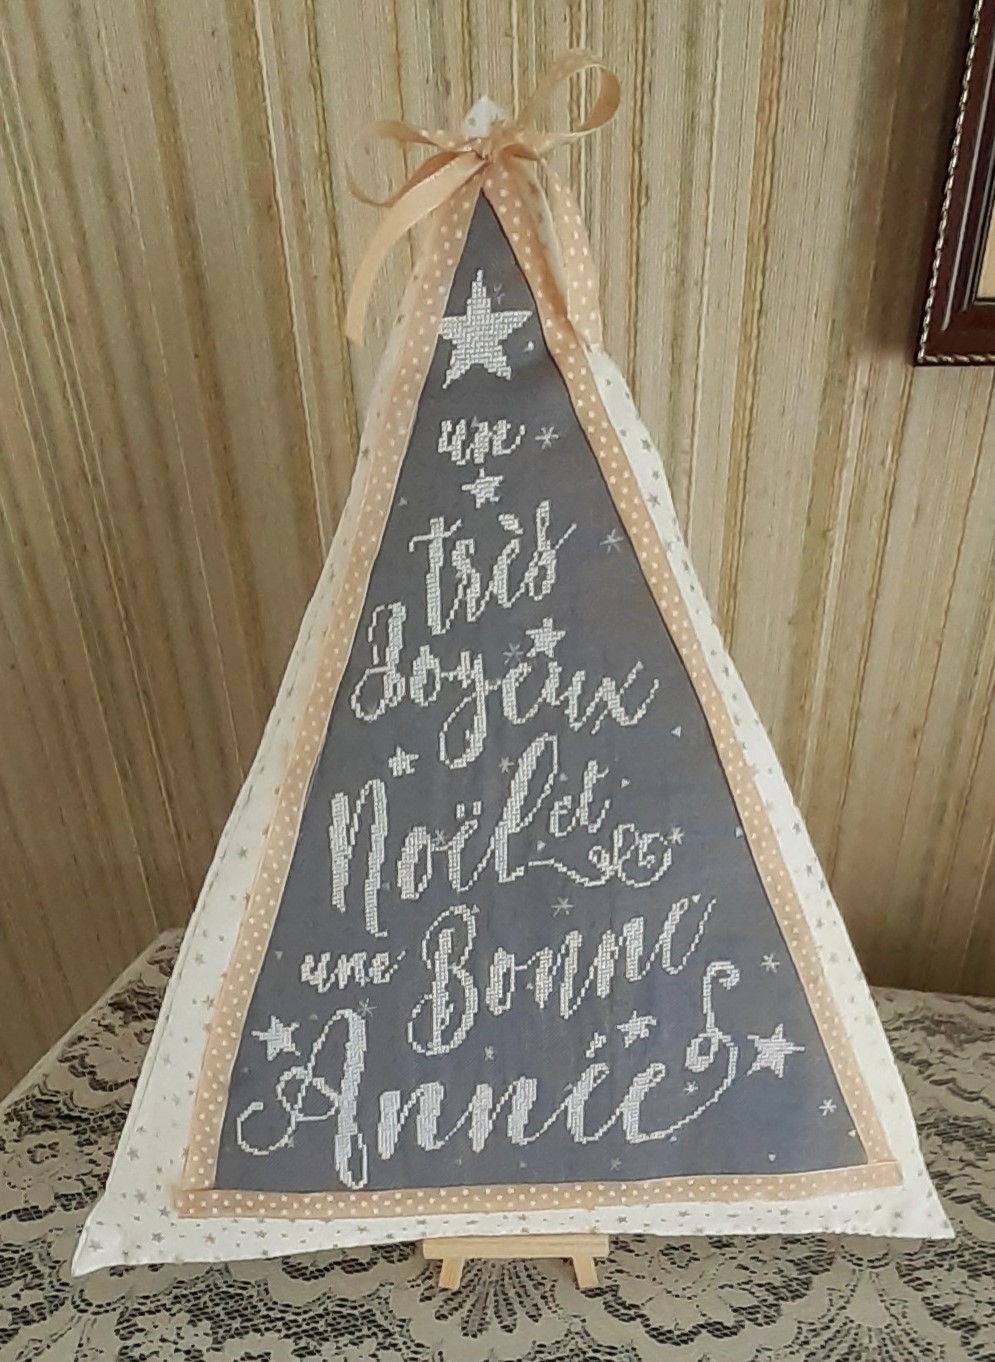 un
très
Joyeux
Noël et
une Bonne
Année